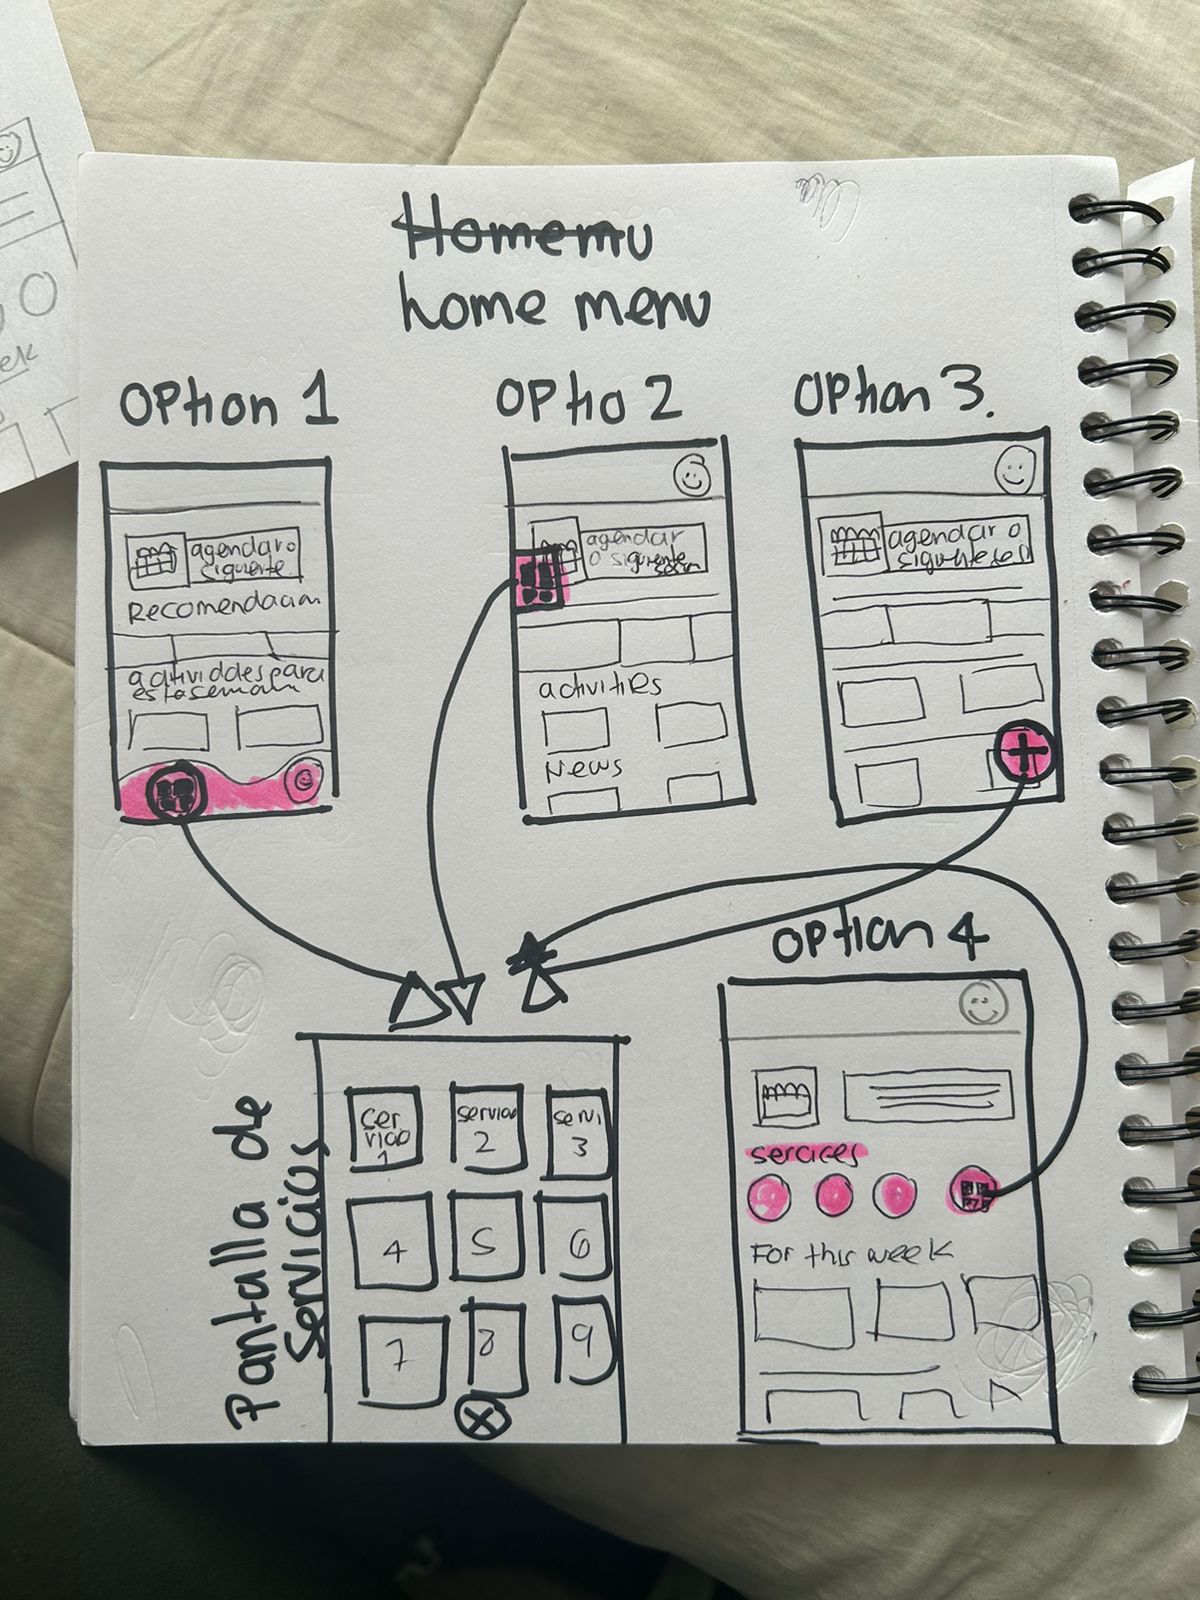 Homemu
home menu
Option 1
Optio 2
Option 3.
agendar o
siguiente
Recomendacion
actividdes para
esta semana
agendar
o siguiente
activities
News
agendar o
Option 4
sercices
For this week
Pantalla de
Servicios
Ser
vicio
1
servicio
2
servi
3
4
5
6
7
8
9
ek